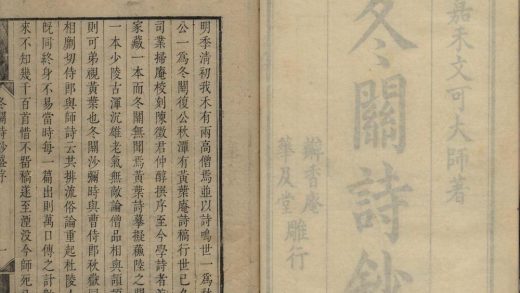 嘉禾文可大師著
冬關詩鈔
瓣香庵
華及堂 雕行
明季清初我禾有兩高僧焉並以詩鳴世一爲秋
公一爲冬關復公秋潭有黃葉庵詩稿行世已
司業掃庵校刻陳徵君仲醇撰序至今學詩者
家藏一本而冬關無聞焉黃葉詩摹擬陸之
一本少陵古渾沉雄老氣無敵論僧品相與頡
則可弟視黃葉也冬關沙彌時與曹侍郎秋嶽同
相劘切侍郎與師詩云共排流俗論重起杜陵人
既同終身不易當時每一篇出則萬口傳之計
來不知幾千百首惜不署稿遂至湮沒今師死
冬關詩鈔序 一